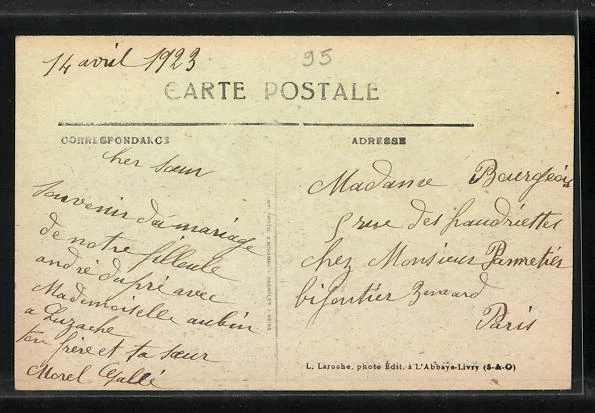 14 avril 1923
95
CARTE POSTALE
CORRESPONDANCE
ADRESSE
cher sœur
souvenir du mariage
de notre filleule
andré dupré avec
Mademoiselle aubin
a Luzache
ton frère et ta sœur
Morel
Madame Bourgeois
5 rue des haudriettes
chez Monsieur
bijoutier
Paris
L. Laroche, photo Édit. à L'Abbaye-Livry (S-&-O)